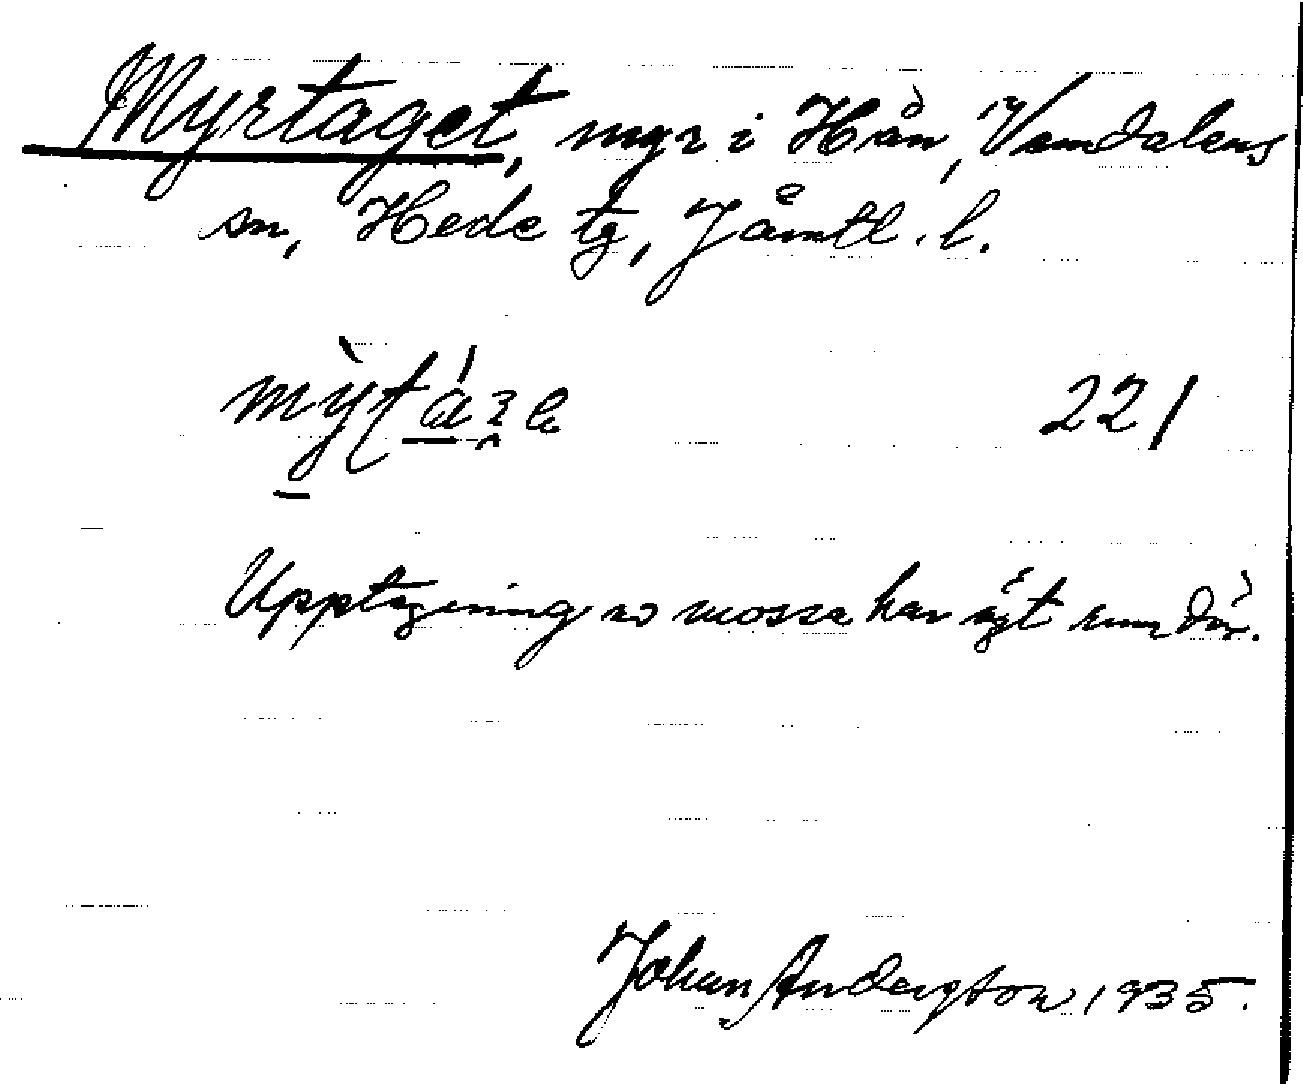 Myrtaget, myr i Hån, Vemdalens
sn, Hede tg, Jämtl. l.
221
Upptagning av mossa har ägt rum där.
Johan Andersson 1935.